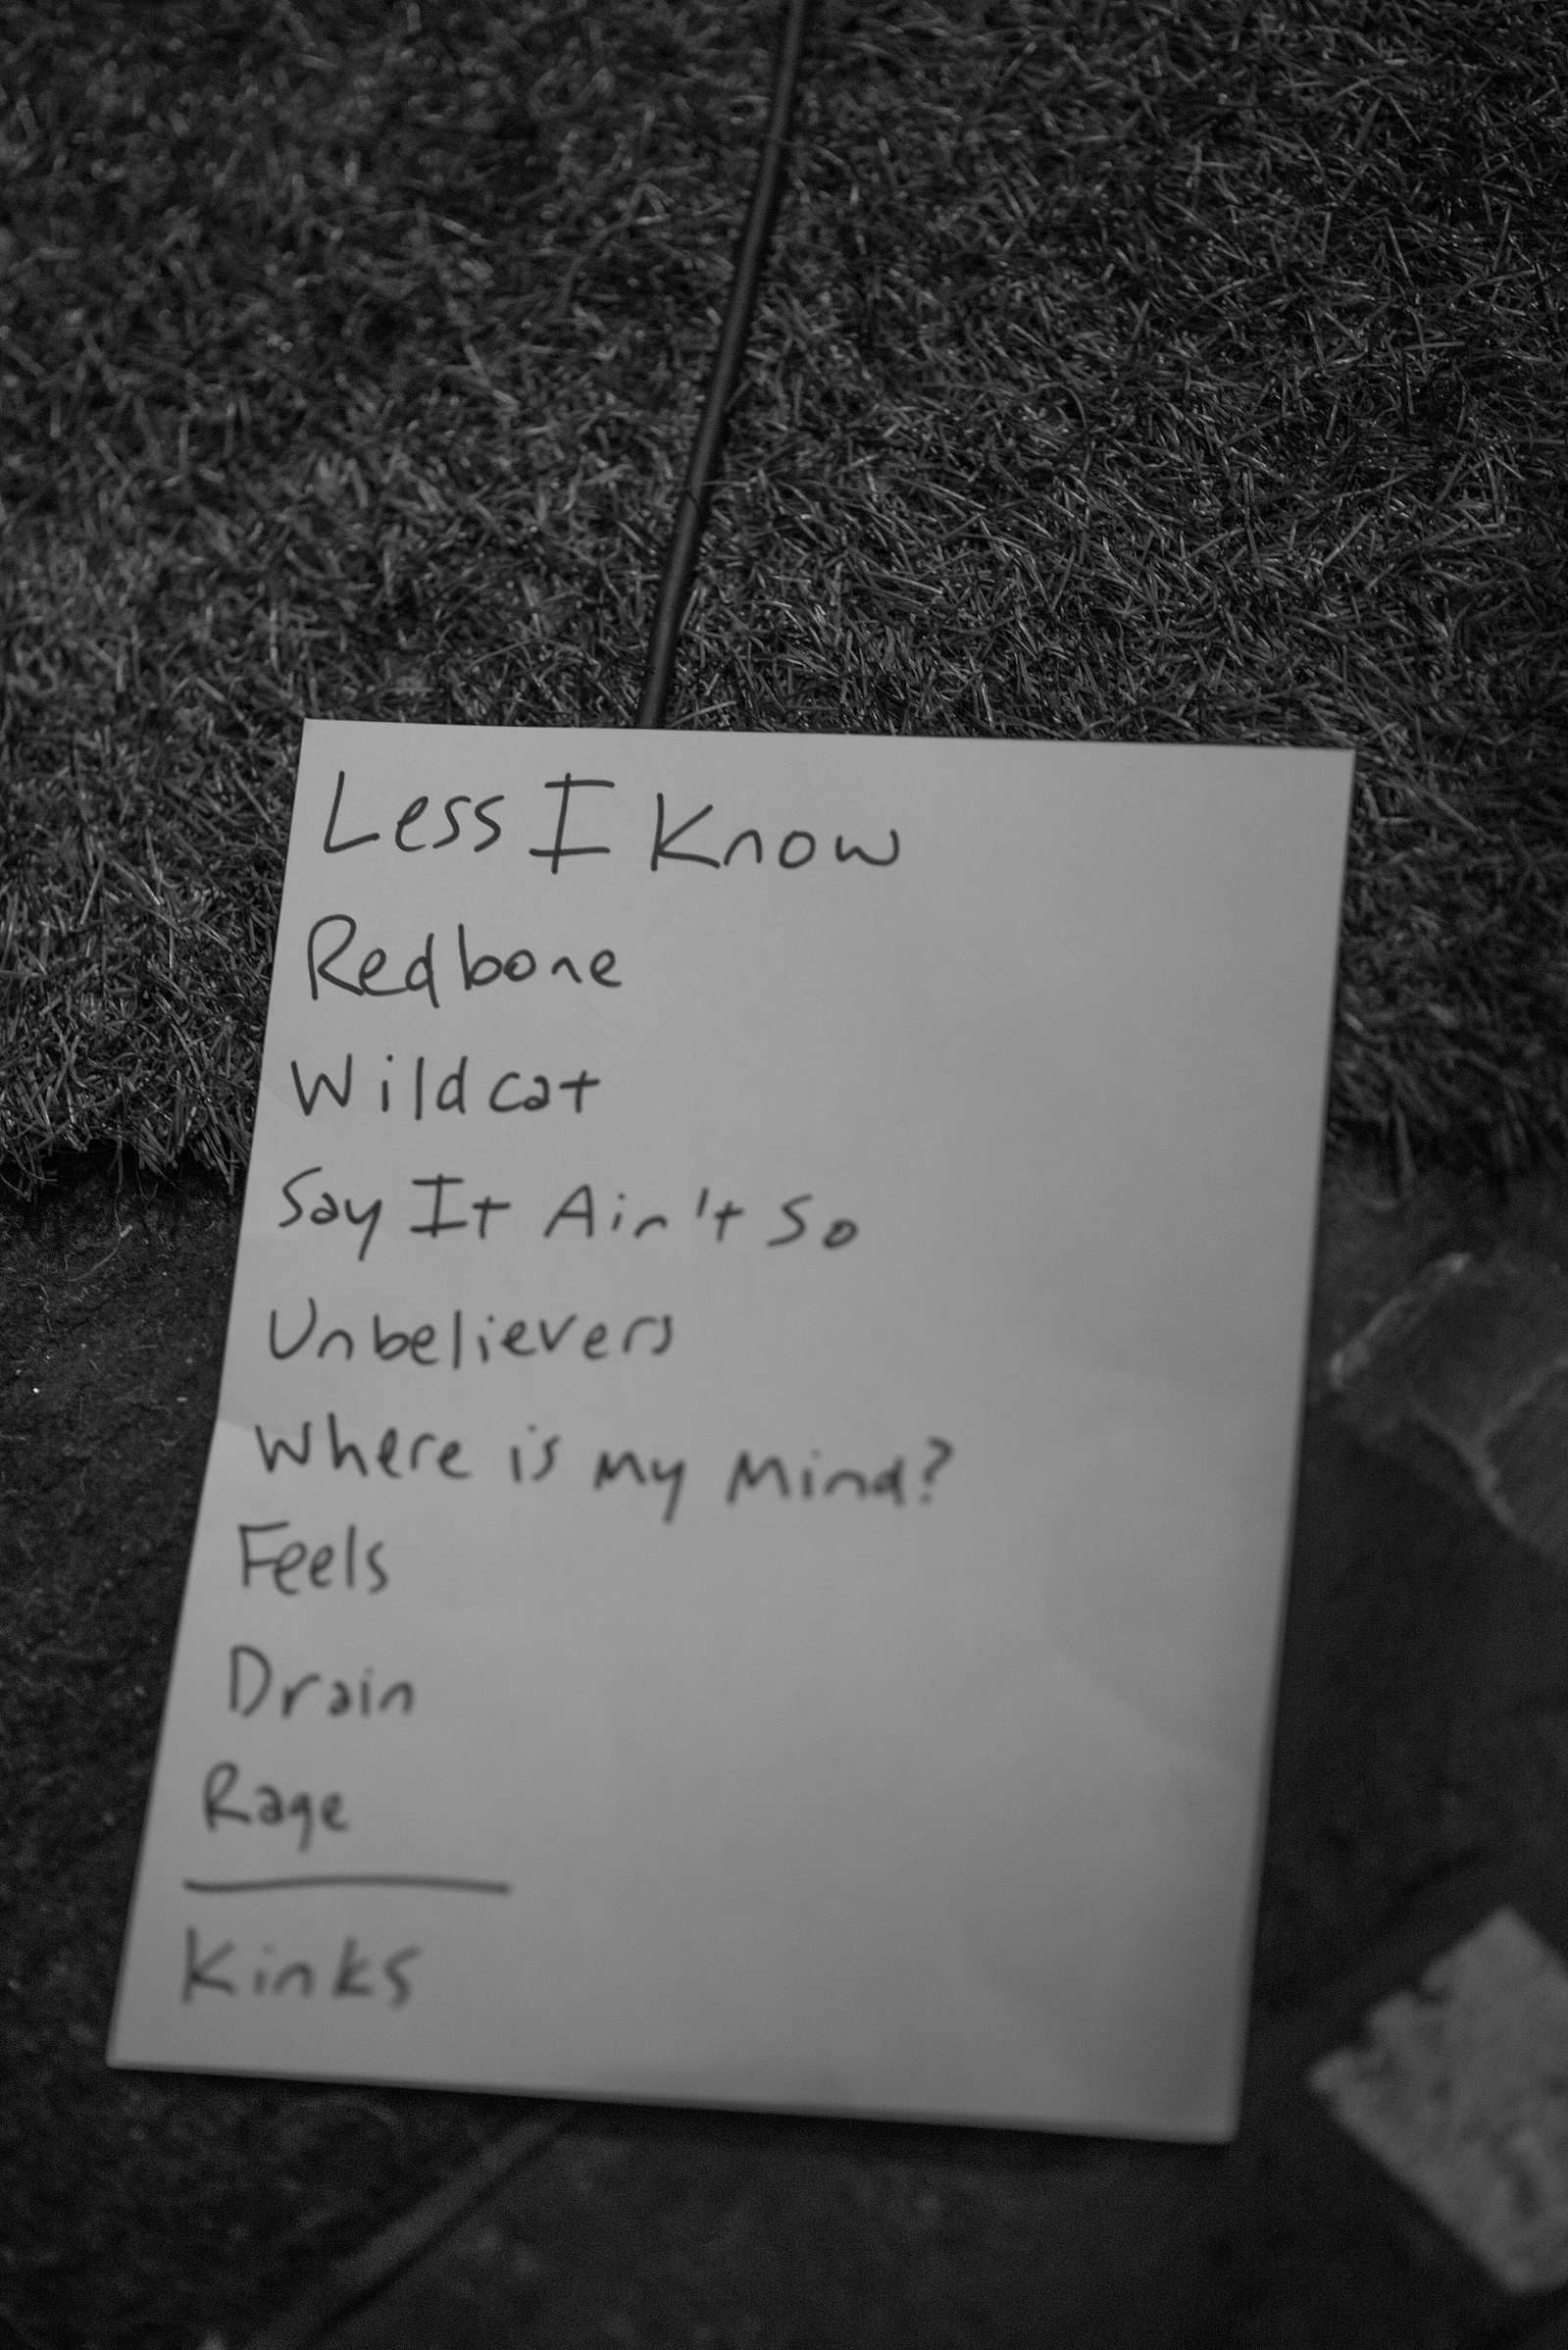 Less I Know
Redbone
Wildcat
Say It Ain't So
Unbelievers
Where is my Mind?
Feels
Drain
Rage
Kinks